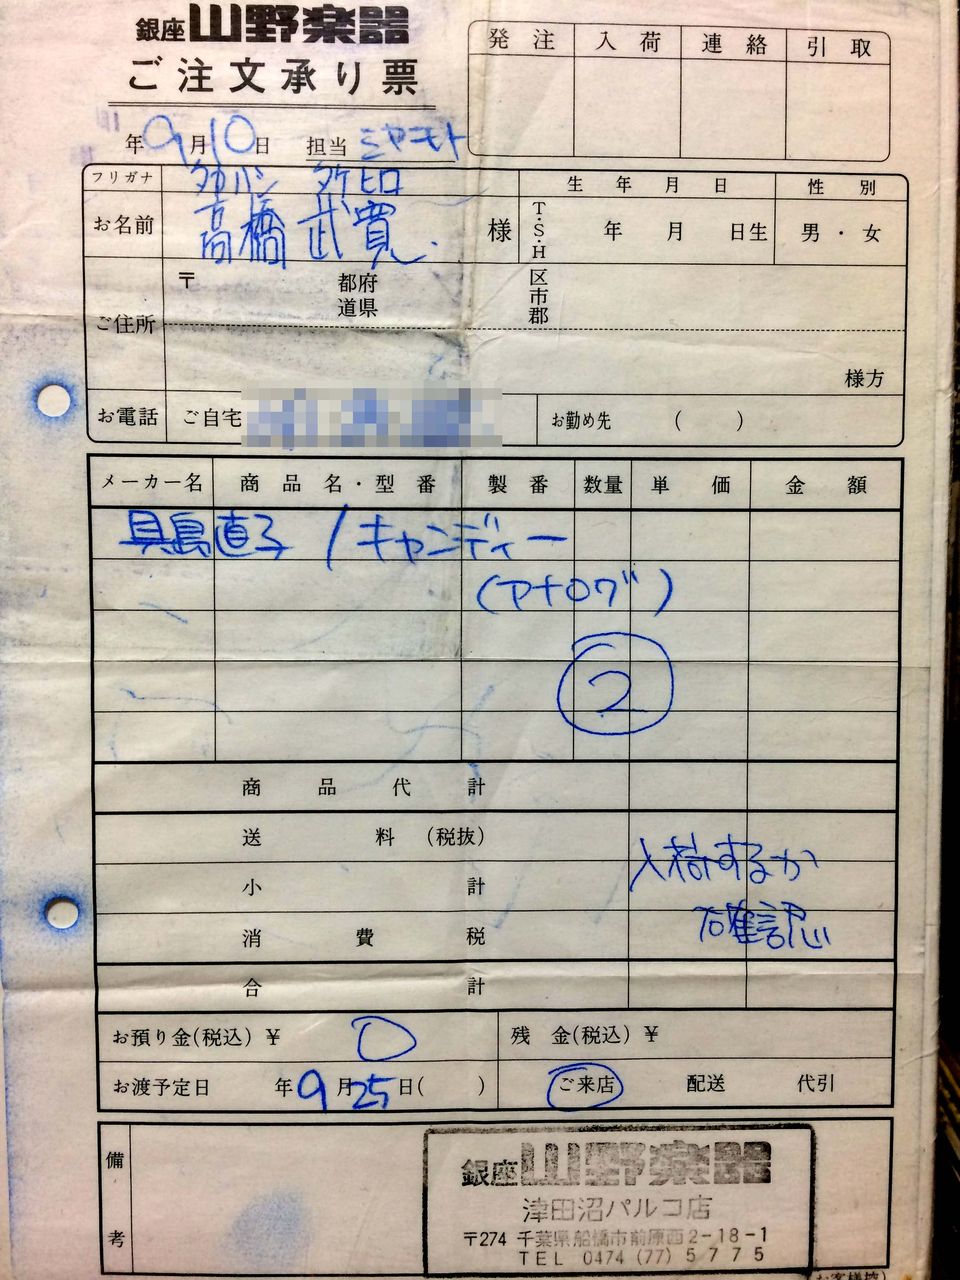 銀座山野楽器
ご注文承り票
発注 入荷 連絡 引取
年9月10日 担当 ミヤモト
フリガナ タカハシ タケヒロ 生年月日 性別
お名前 高橋 武寛 様 T・S・H 年 月 日生 男・女
ご住所 〒 都府道県 区市郡
様方
お電話 ご自宅 お勤め先 ( )
メーカー名 商品名・型番 製番 数量 単価 金額
具島直子 / キャンディー
(アナログ)
2
商品代計
送料(税抜)
入荷するか
小計
確認
消費税
合計
お預り金(税込) ¥ 0 残金(税込) ¥
お渡予定日 年9月25日( ) ご来店 配送 代引
備考
銀座山野楽器
津田沼パルコ店
〒274 千葉県船橋市前原西2-18-1
TEL 0474 (77) 5775
(お客様控)